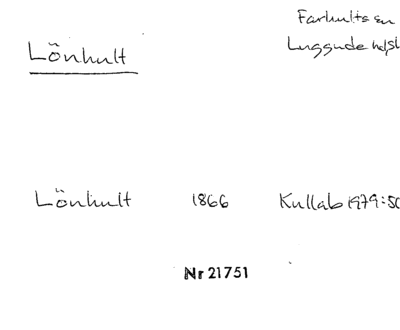 Farhults sn
Luggude hd
Lönhult
Lönhult 1866 Kullab 1979:50
Nr 21751